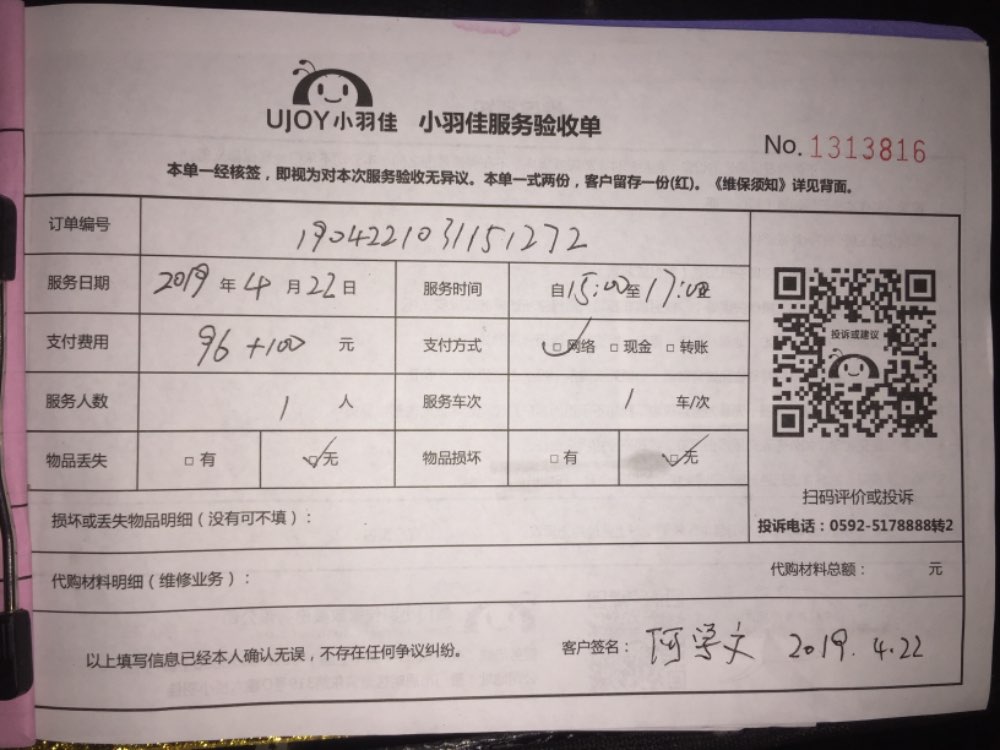 UJOY小羽佳 小羽佳服务验收单
No. 1313816
本单一经核签，即视为对本次服务验收无异议。本单一式两份，客户留存一份(红)。《维保须知》详见背面。
订单编号 1904221031151272
服务日期 2019 年 4 月 22 日 服务时间 自 15:00 至 17:00
支付费用 96+100 元 支付方式 □网络 □现金 □转账
服务人数 1 人 服务车次 1 车/次
物品丢失 □有 □无 物品损坏 □有 □无
投诉或建议
扫码评价或投诉
投诉电话：0592-5178888转2
损坏或丢失物品明细（没有可不填）：
代购材料明细（维修业务）： 代购材料总额： 元
以上填写信息已经本人确认无误，不存在任何争议纠纷。 客户签名：阿学文 2019.4.22